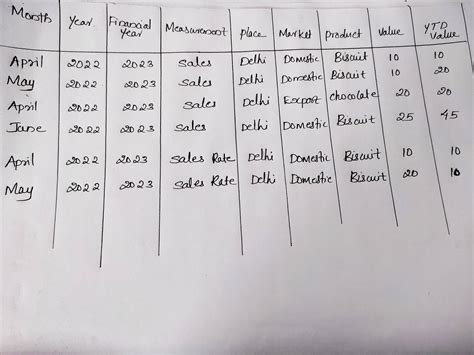 Month Year Financial Year Measurement Place Market Product Value YTD Value
April 2022 2023 Sales Delhi Domestic Biscuit 10 10
May 2022 2023 Sales Delhi Domestic Biscuit 10 20
April 2022 2023 Sales Delhi Export Chocolate 20 20
June 2022 2023 Sales Delhi Domestic Biscuit 25 45
April 2022 2023 Sales Rate Delhi Domestic Biscuit 10 10
May 2022 2023 Sales Rate Delhi Domestic Biscuit 20 10